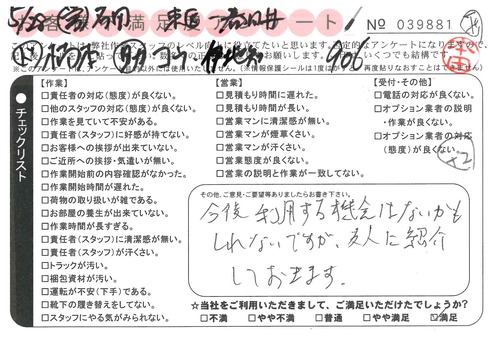 お客様満足度アンケート!
№ 039881
5/28
906
●チェックリスト
【作業】
□責任者の対応(態度)が良くない。
□他のスタッフの対応(態度)が良くない。
□作業を見ていて不安がある。
□責任者(スタッフ)に好感が持てない。
□お客様への挨拶が出来ていない。
□ご近所への挨拶・気遣いが無い。
□作業開始前の内容確認がなかった。
□作業開始時間が遅れた。
□荷物の取り扱いが雑である。
□お部屋の養生が出来ていない。
□作業時間が長すぎる。
□責任者(スタッフ)に清潔感が無い。
□責任者(スタッフ)が汗くさい。
□トラックが汚い。
□梱包資材が汚い。
□運転が不安(下手)である。
□靴下の履き替えをしてない。
□スタッフにやる気がみられない。
【営業】
□見積もり時間に遅れた。
□見積もり時間が長い。
□営業マンに清潔感が無い。
□営業マンが煙草くさい。
□営業マンが汗くさい。
□営業態度が良くない。
□営業の説明と作業が一致してない。
【受付・その他】
□電話の対応が良くない。
□オプション業者の説明
・作業が良くない。
□オプション業者の対応
(態度)が良くない。
+2
その他、ご意見・ご要望等ありましたらお書き下さい。
今後利用する機会はないかも
しれないですが、友人に紹介
しておきます。
☆当社をご利用いただきまして、ご満足いただけたでしょうか?
□不満 □やや不満 □普通 □やや満足 ☑満足